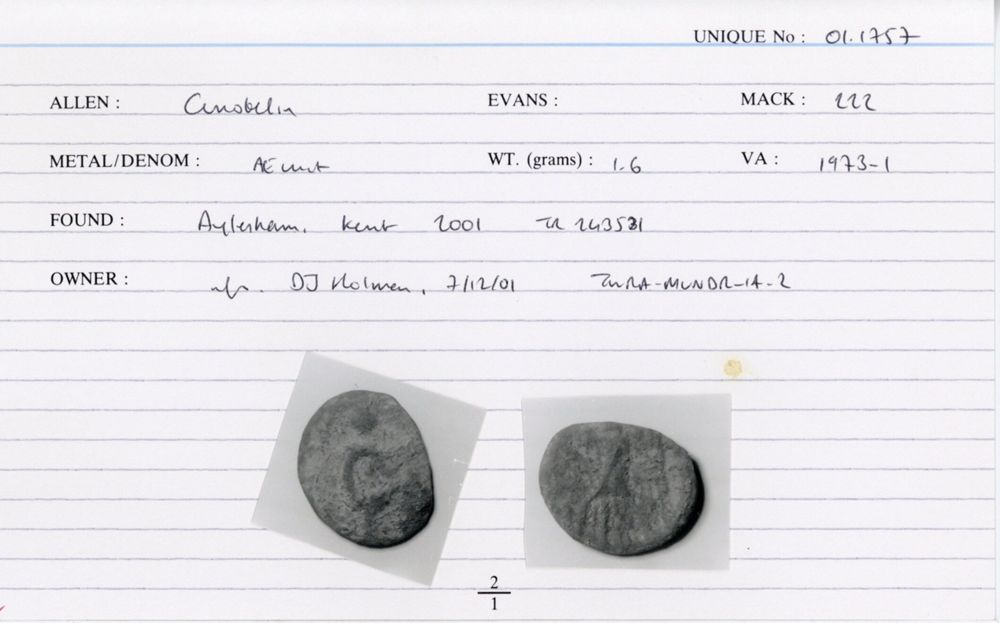 UNIQUE No : 01.1757
ALLEN : Cunobelin EVANS : MACK : 222
METAL/DENOM : AE unit WT. (grams) : 1.6 VA : 1973-1
FOUND : Aylesham, Kent 2001 TR 243521
OWNER : DJ Holman, 7/12/01
2
1